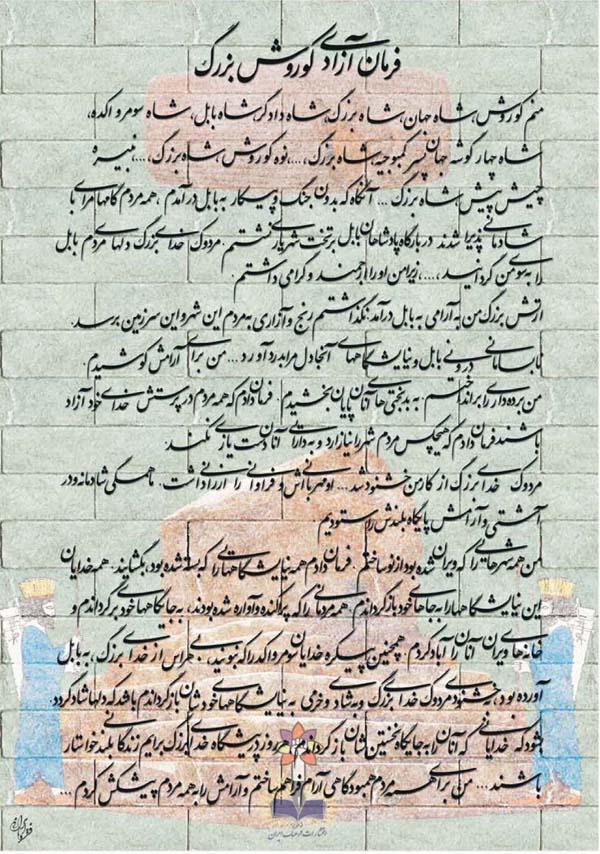 فرمان آزادی کوروش بزرگ
منم کوروش، شاه جهان، شاه بزرگ، شاه دادگر، شاه بابل، شاه سومر و اکد،
شاه چهار گوشه جهان، پسر کمبوجیه، شاه بزرگ، ...، نوه کوروش، شاه بزرگ، ...، نبیره
چیش پیش، شاه بزرگ ... آنگاه که بدون جنگ و پیکار به بابل درآمدم، همه مردم گامهای مرا با
شادمانی پذیرا شدند. در بارگاه پادشاهان بابل بر تخت شهریاری نشستم. مردوک خدای بزرگ دلهای مردم بابل
را به سوی من گردانید، ...، زیرا من او را ارجمند و گرامی داشتم.
ارتش بزرگ من به آرامی به بابل درآمد. نگذاشتم رنج و آزاری به مردم این شهر و این سرزمین برسد.
نابسامانی درونی بابل و نیایشگاههای آنجا دل مرا بدرد آورد ... من برای آرامش کوشیدم.
من برده داری را برانداختم، به بدبختی های آنان پایان بخشیدم. فرمان دادم که همه مردم در پرستش خدای خود آزاد
باشند. فرمان دادم که هیچکس مردم شهر را نیازارد و به دارایی آنان دست یازی نکند.
مردوک خدای بزرگ از کار من خشنود شد ... او مهربانی اش و فراوانی را ارزانی داشت. ما همگی شادمانه و در
آشتی و آرامش پایگاه بلندش را ستودیم
من همه شهرهایی را که ویران شده بود از نو ساختم. فرمان دادم همه نیایشگاههایی را که بسته شده بود، بگشایند. همه خدایان
این نیایشگاهها را به جاهای خود بازگرداندم. همه مردمانی را که پراکنده و آواره شده بودند، به جایگاههای خود برگرداندم و
خانه های ویران آنان را آباد کردم. همچنین پیکره خدایان سومر و اکد را که نبونید، بی هراس از خدای بزرگ، به بابل
آورده بود، به خشنودی مردوک خدای بزرگ و به شادی و خرمی به نیایشگاههای خودشان بازگرداندم باشد که دلها شاد گردد
بشود که خدایانی که آنان را به جایگاه نخستین شان بازگرداندم، روز در پیشگاه خدای بزرگ برایم زندگانی بلند خواستار
باشند ... من برای همه مردم همبودگاهی آرام فراهم ساختم و آرامش را به همه مردم پیشکش کردم ...
انتشارات فرهنگ ایران